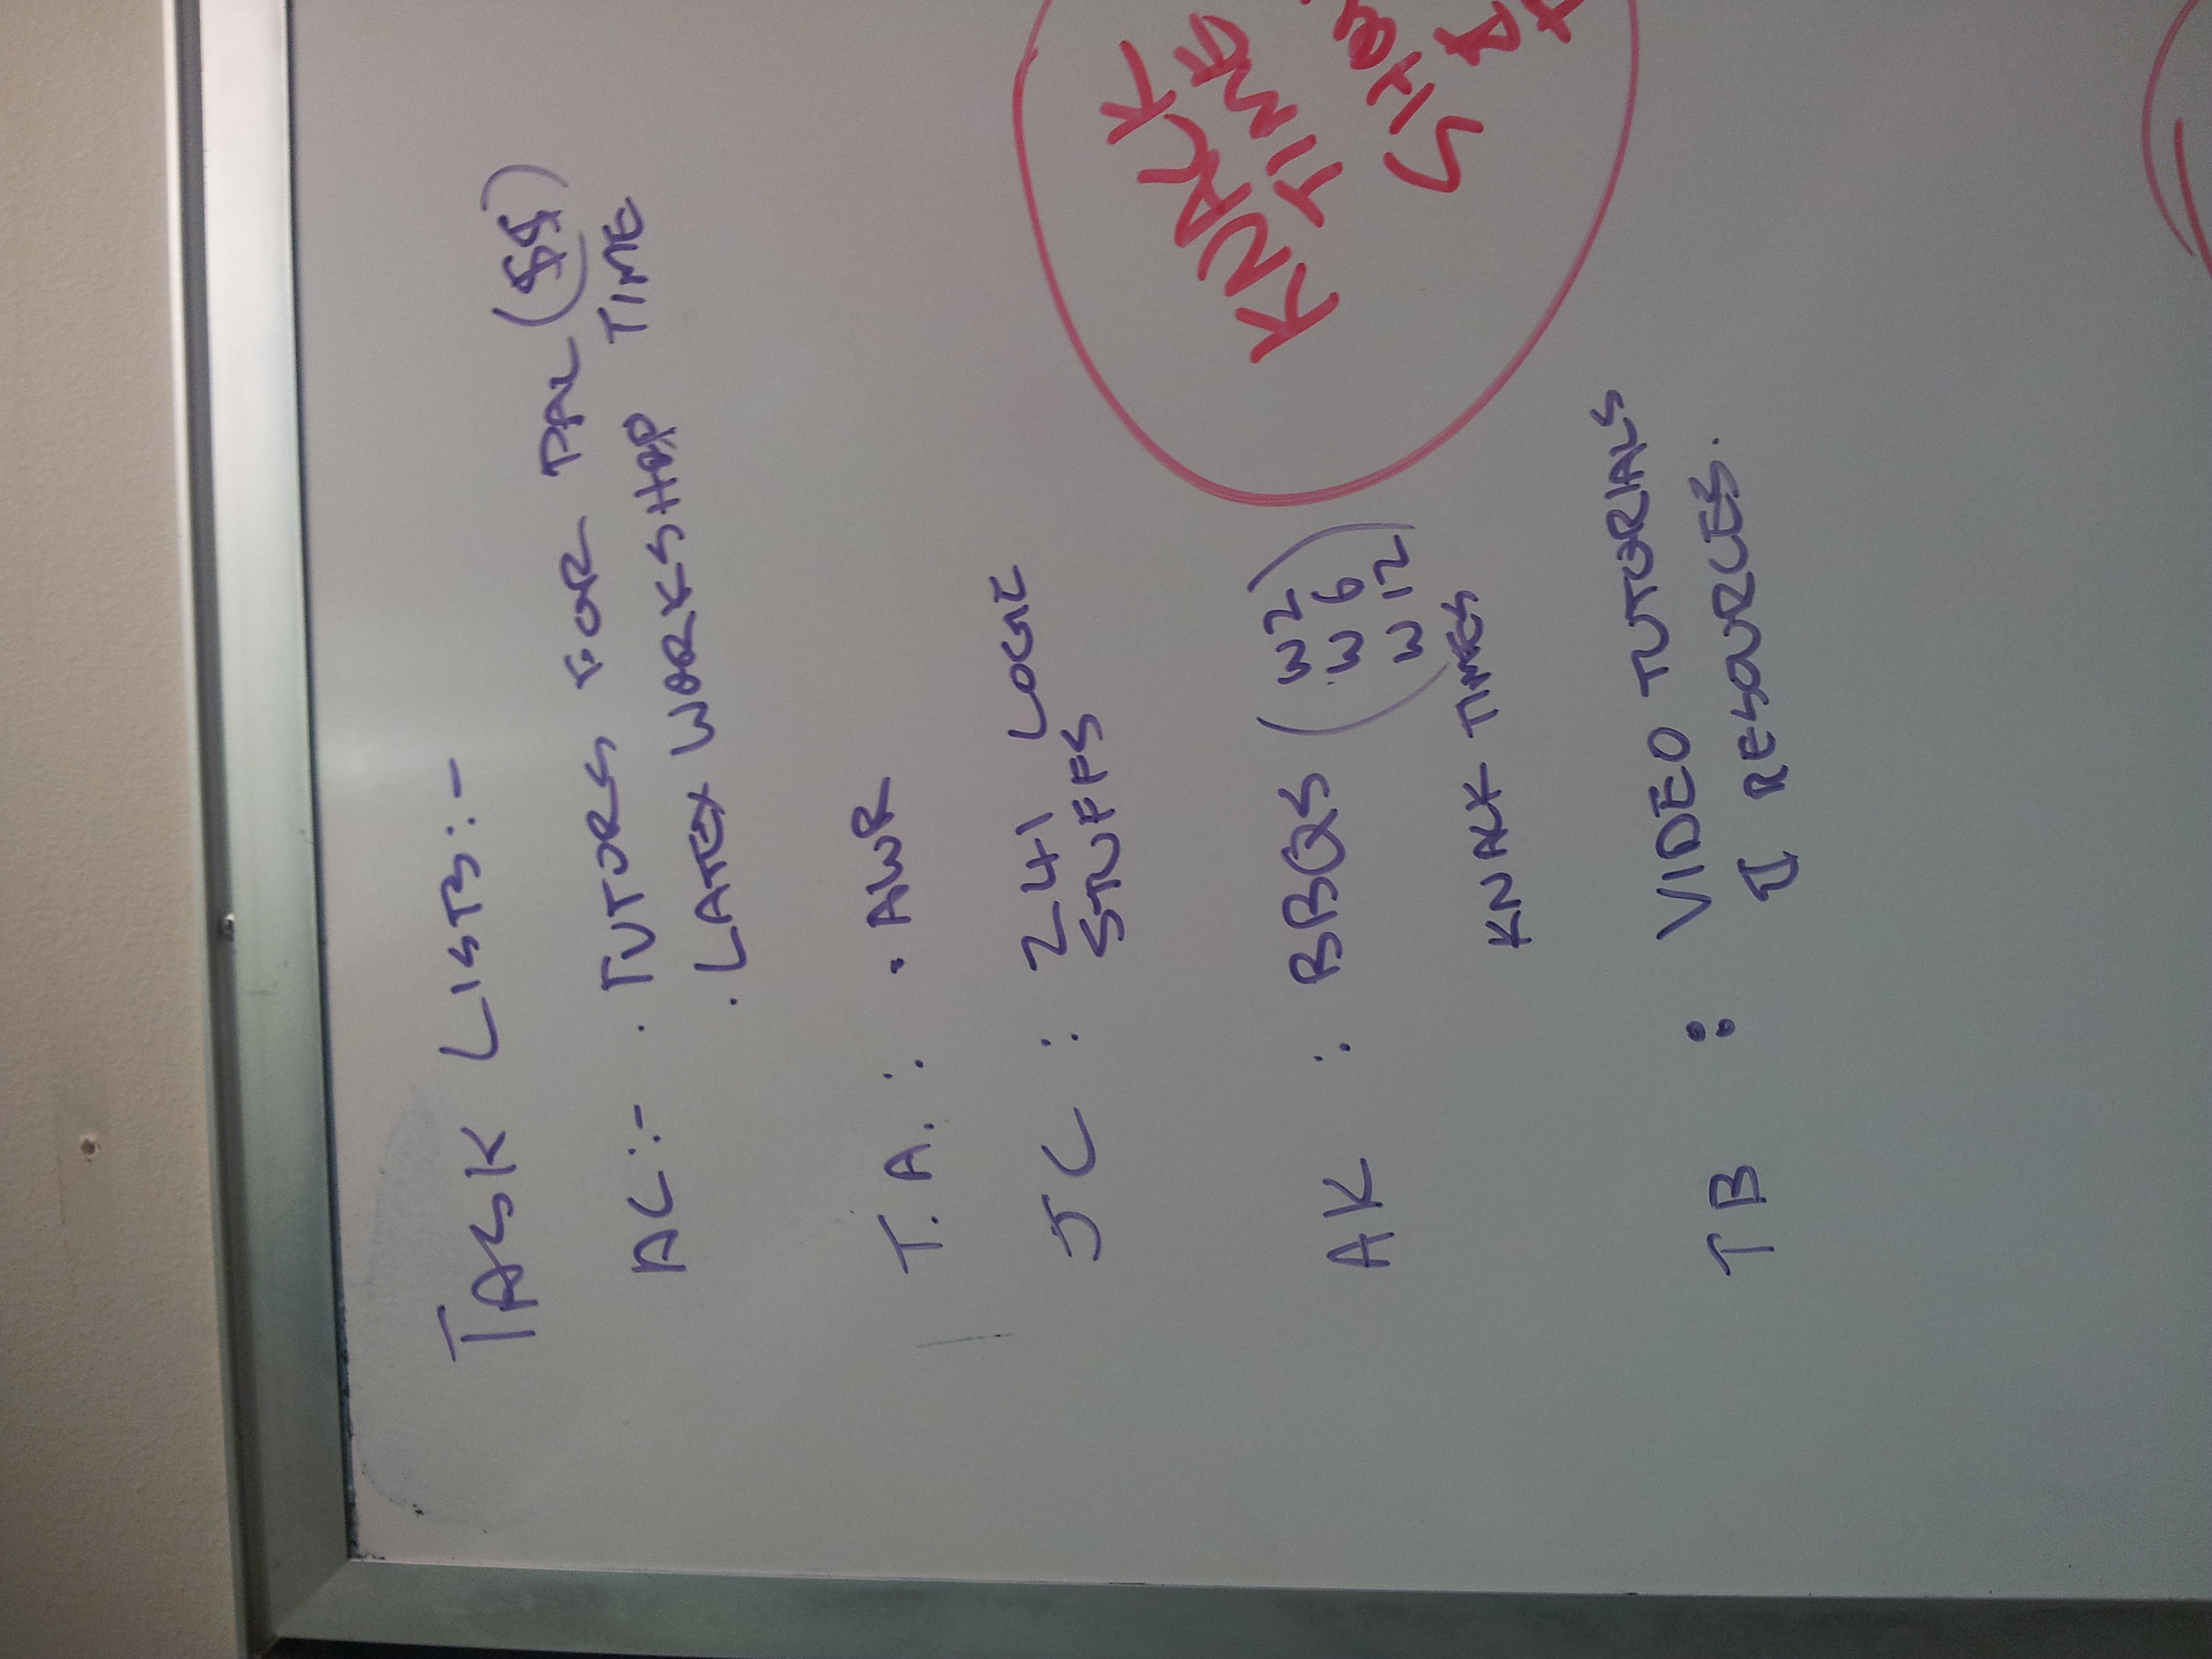 TASK LISTS:-
AC:- . TUTORS FOR PAL ($$)
. LATEX WORKSHOP TIME
T.A. : • AWR
JC : 241 LOGIC
STUFFS
AK : BBQS (W2
W6
W12)
KNACK TIMES
TB : VIDEO TUTORIALS
& RESOURCES.
KNACK
TIME